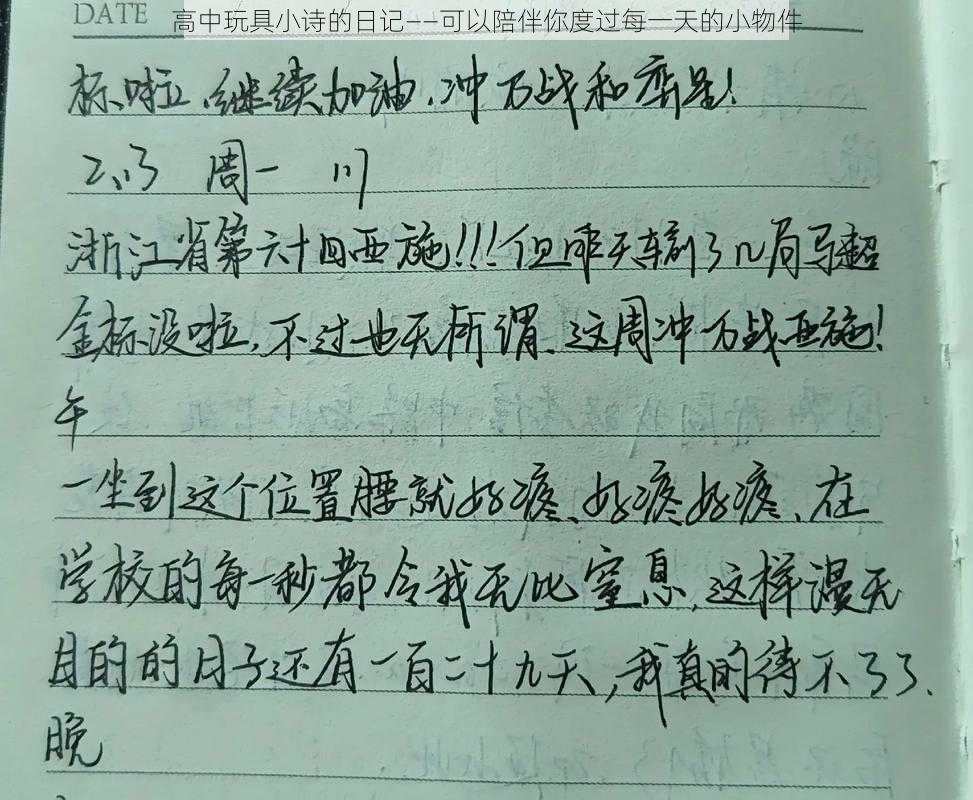 DATE
高中玩具小诗的日记——可以陪伴你度过每一天的小物件
标啦,继续加油,冲万战和齐星!
2.13 周一 川
浙江省第六十四西施!!!但昨天车刹了几局马超
金标没啦,不过也无所谓、这周冲万战西施!
午
一坐到这个位置腰就好疼、好疼好疼、在
学校的每一秒都令我无比窒息,这样漫无
目的的日子还有一百二十九天,我真的待不了了、
晚